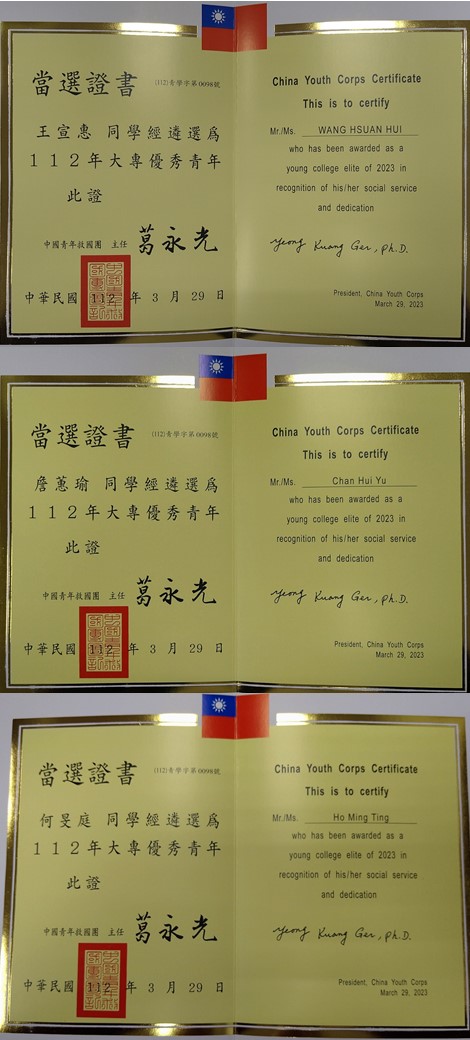 當選證書
(112)青學字第0098號
王宣惠 同學經遴選為
112年大專優秀青年
此證
中國青年救國團 主任 葛永光
中華民國 112 年 3 月 29 日
China Youth Corps Certificate
This is to certify
Mr./Ms. WANG HSUAN HUI
who has been awarded as a
young college elite of 2023 in
recognition of his/her social service
and dedication
Yeong Kuang Ger, Ph.D.
President, China Youth Corps
March 29, 2023
當選證書
(112)青學字第0098號
詹蕙瑜 同學經遴選為
112年大專優秀青年
此證
中國青年救國團 主任 葛永光
中華民國 112 年 3 月 29 日
China Youth Corps Certificate
This is to certify
Mr./Ms. Chan Hui Yu
who has been awarded as a
young college elite of 2023 in
recognition of his/her social service
and dedication
Yeong Kuang Ger, Ph.D.
President, China Youth Corps
March 29, 2023
當選證書
(112)青學字第0098號
何旻庭 同學經遴選為
112年大專優秀青年
此證
中國青年救國團 主任 葛永光
中華民國 112 年 3 月 29 日
China Youth Corps Certificate
This is to certify
Mr./Ms. Ho Ming Ting
who has been awarded as a
young college elite of 2023 in
recognition of his/her social service
and dedication
Yeong Kuang Ger, Ph.D.
President, China Youth Corps
March 29, 2023